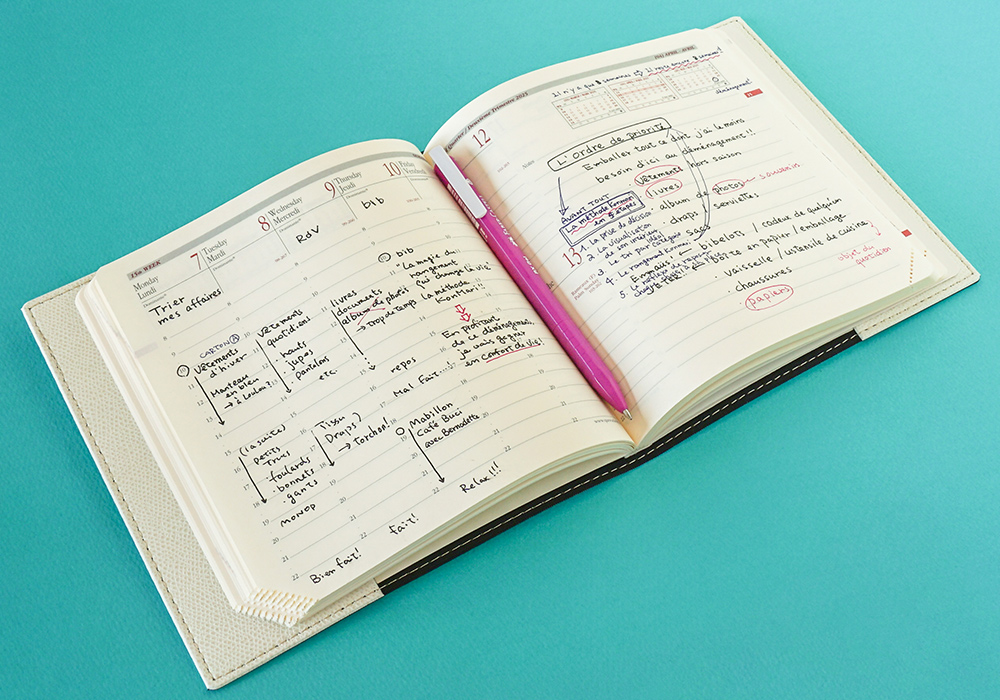 15e WEEK
7
Monday
Lundi
Tuesday
Mardi
8
Wednesday
Mercredi
9
Thursday
Jeudi
10
Friday
Vendredi
Trier
mes affaires
CARTON
Vêtements
d'hiver
Manteau
en bleu
→ à Loulou?
(la suite)
petits
trucs
.foulards
.bonnets
.gants
monop
Bien fait!
Vêtements
quotidiens
. hauts
. jupes
. pantalons
etc.
Tissu
Draps)
→ Torchon!
fait!
RdV
livres
documents
album de photos
→ trop de temps
repos
Mal fait....!
Mabillon
Café Buci
avec Bernadette
Relax!!!
bib
bib
"La magie du
rangement
qui change la vie"
la méthode
KonMari!!
En profitant
de ce déménagement,
je vais gagner
en confort de vie!
Deuxième Trimestre 2025
APRIL - AVRIL
Il n'y a que 3 semaines
déménagement!
12
L'ordre de priorité
Emballer tout ce dont j'ai le moins
besoin d'ici au déménagement!!
Vêtements hors saison
livres
album de photos souvenirs
draps serviettes
sacs
bibelots / cadeau de quelqu'un
boîte en papier / emballage
vaisselle / ustensile de cuisine
chaussures
papiers
objet du
quotidien
AVANT TOUT
La méthode Konmari
en 5 étapes
13
1. la prise de décision
2. La visualisation
de son intérieur idéal
3. Le tri par catégorie
4. Le rangement Konmari
5.
Emmaüs